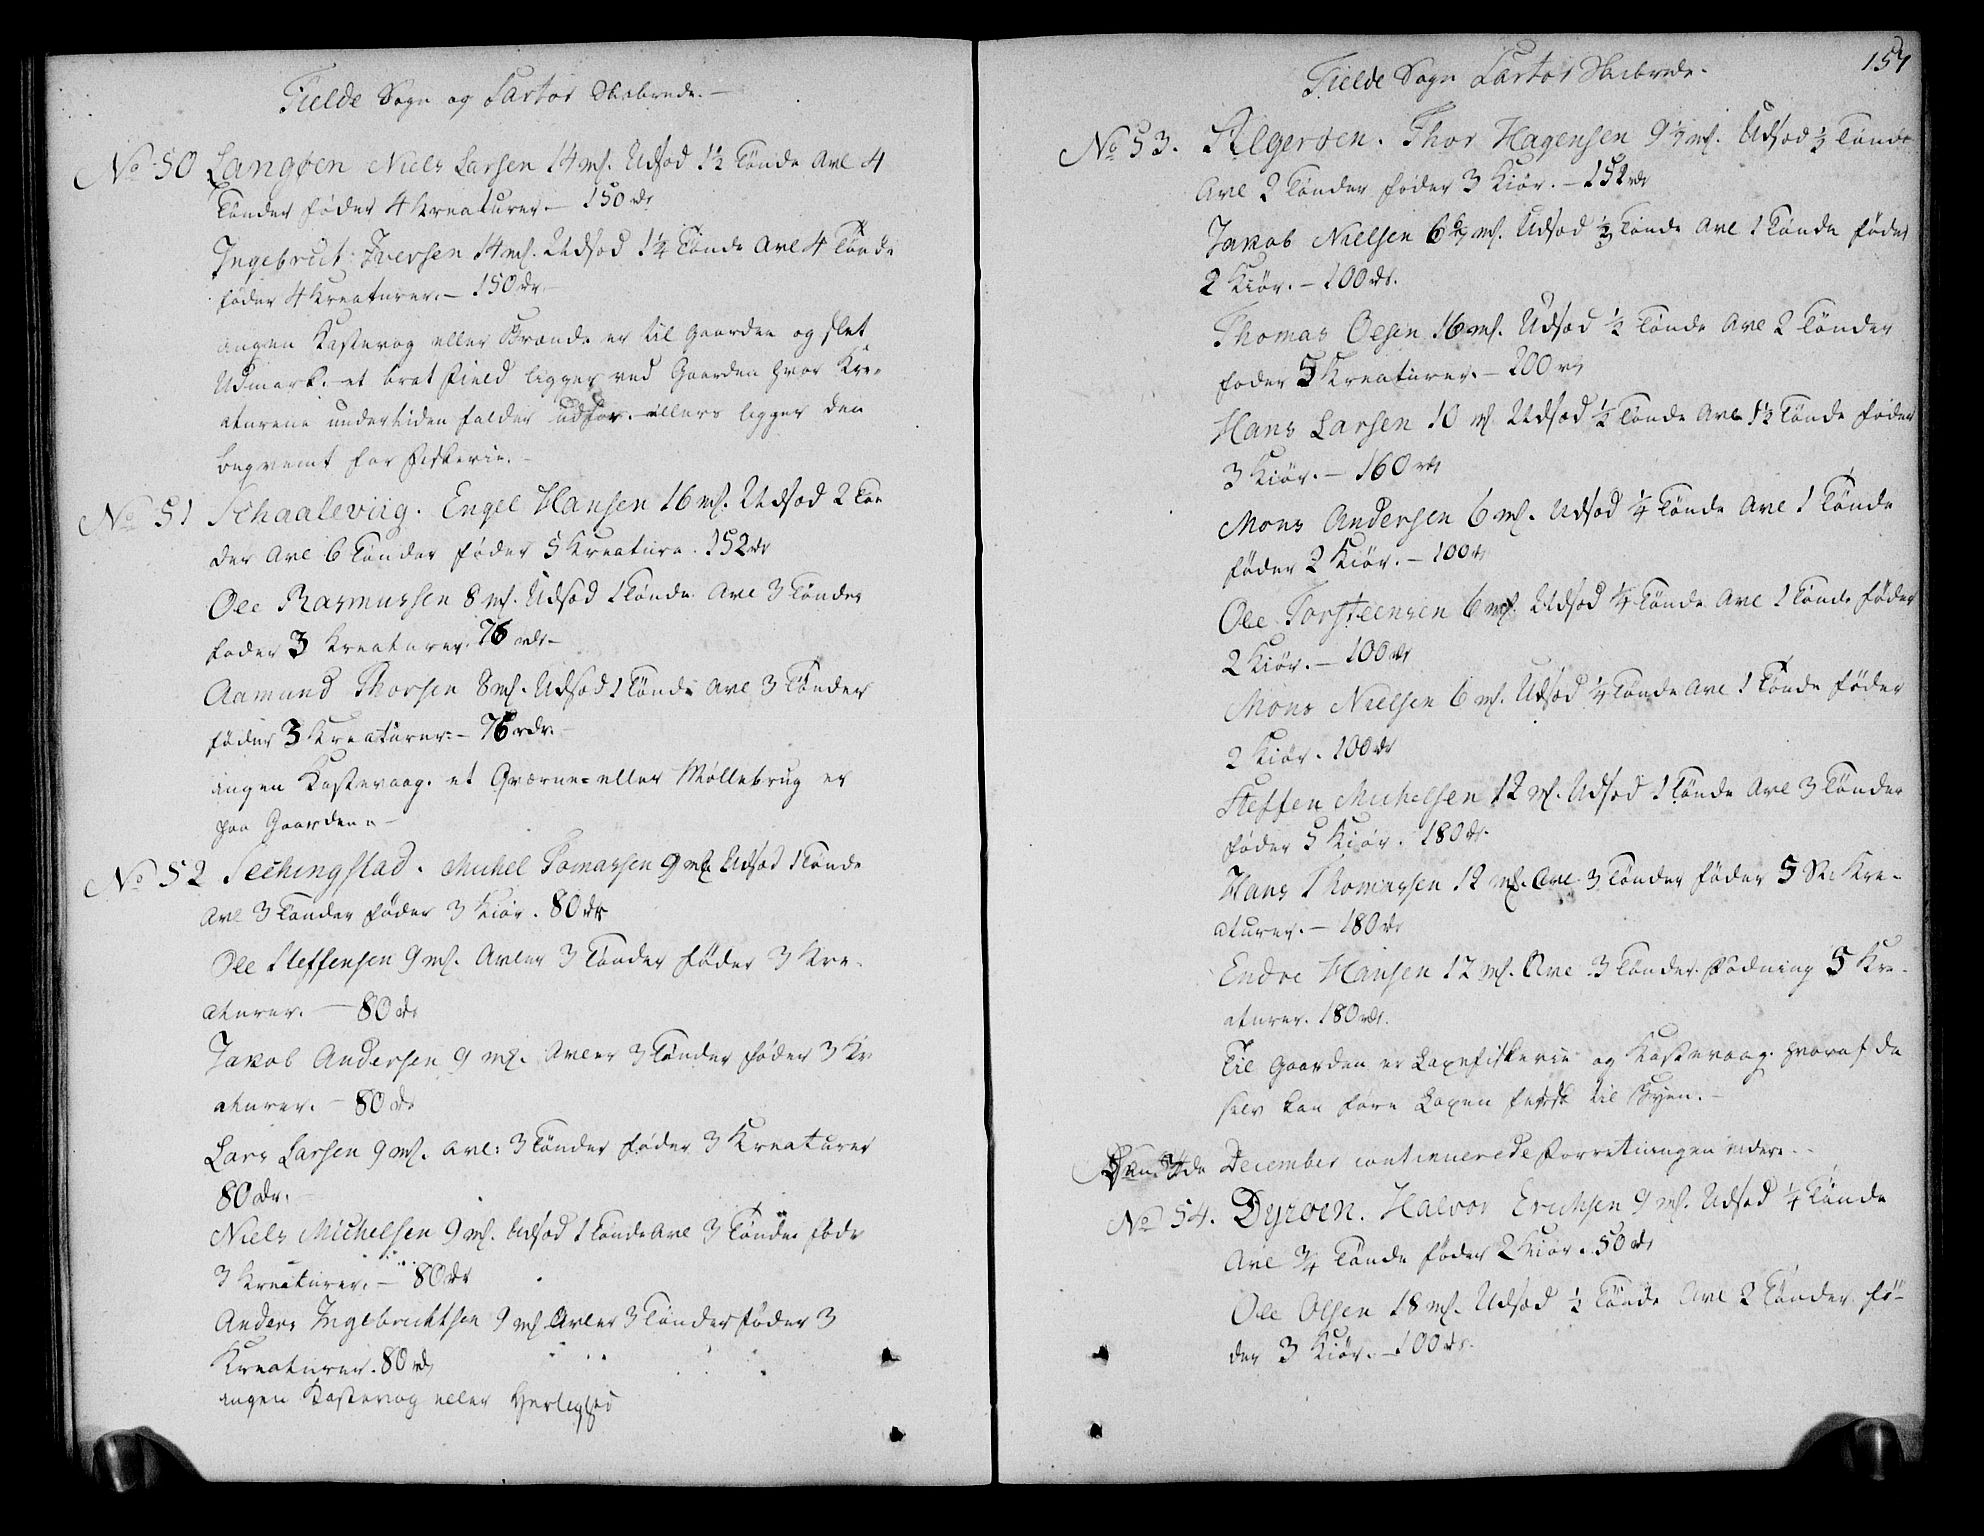 Fielde Sogn og Sartor Skibrede. —
No 50 Langøen Niels Larsen 14 mk. Udsød 1½ Tönde Avl 4
Tönder föder 4 Kreaturer. — 150 rdr
Ingebrict Iversen 14 mk. Udsød 1¼ Tönde Avl 4 Tönde
föder 4 Kreaturer. — 150 rdr
ingen Kastevog eller Brænde er til Gaarden og slet
Udmark. et brat Field ligger ved Gaarden hvor Kre-
aturene undertiden falder udfor. ellers ligger den
beqvemt for Fiskerie. —
No 51 Schaaleviig. Engel Hansen 16 mk. Udsød 2 Tön
der Avl 6 Tönder föder 5 Kreature. 152 rdr
Ole Rasmussen 8 mk. Udsød 1 Tönde Avl 3 Tönder
foder 3 Kreaturer. 76 rdr —
Aamund Thorsen 8 mk. Udsød 1 Tönde Avl 3 Tönder
föder 3 Kreaturer — 76 rdr.
ingen Kastevaag. et Qværne= eller Möllebrug er
paa Gaarden. —
No 52 Sechingstad. Michel Tomassen 9 mk Udsød 1 Tönde
Avl 3 Tönder föder 3 Kiör. 80 rdr
Ole Steffensen 9 mk. Avler 3 Tönder föder 3 Kre-
aturer. — 80 rdr
Jakob Andersen 9 mk. Avler 3 Tönder föder 3 Kr
aturer. — 80 rdr
Lars Larsen 9 mk. Avl: 3 Tönder föder 3 Kreaturer
80 rdr.
Niels Michelsen 9 mk. Udsød 1 Tönde Avl 3 Tönder föder
3 Kreaturer. — 80 rdr
Anders Ingebrichtsen 9 mk Avler 3 Tönder föder 3
Kreaturer. 80 rdr
ingen Kastevog eller Herlighed
Fielde Sogn Sartor Skibrede.
157
No 53. Algerøen. Thor Hagensen 9½ mk. Udsød ½ Tönde
Avl 2 Tönder föder 3 Kiör. — 152 rdr
Jakob Nielsen 6 mk. Udsød ½ Tönde Avl 1 Tönde föder
2 Kiör. — 100 rdr.
Thomas Olsen 16 mk. Udsød ½ Tönde Avl 2 Tönder
foder 5 Kreaturer. — 200 rdr
Hans Larsen 10 mk Udsød ½ Tönde Avl 1½ Tönde föder
3 Kiör. — 160 rdr
Mons Andersen 6 mk. Udsød ¼ Tönde Avl 1 Tönde
föder 2 Kiör. — 100 rdr
Ole Torsteensen 6 mk. Udsød ¼ Tönde Avl 1 Tönde föder
2 Kiör. — 100 rdr
Mons Nielsen 6 mk. Udsød ¼ Tönde Avl 1 Tönde föder
2 Kiör. 100 rdr
Steffen Michelsen 12 mk. Udsød 1 Tönde Avl 3 Tönder
föder 5 Kiör. 180 rdr.
Hans Thomassen 12 mk. Avl 3 Tönder föder 5 St: Kre-
aturer. — 180 rdr
Endre Hansen 12 mk. Avl 3 Tönder Födning 5 Kre-
aturer. 180 rdr.
Til Gaarden er Laxefiskerie og Kastevaag. hvoraf de
selv kan före Laxen fersk til Byen. —
Den de December continuerede Forretningen videre. —
No 54. Dyröen. Halvor Erichsen 9 mk. Udsød ¼ Tönde
Avl ¾ Tönde föder 2 Kiör. 50 rdr
Ole Olsen 18 mk. Udsød ½ Tönde Avl 2 Tönder fö-
der 3 Kiör. — 100 rdr.